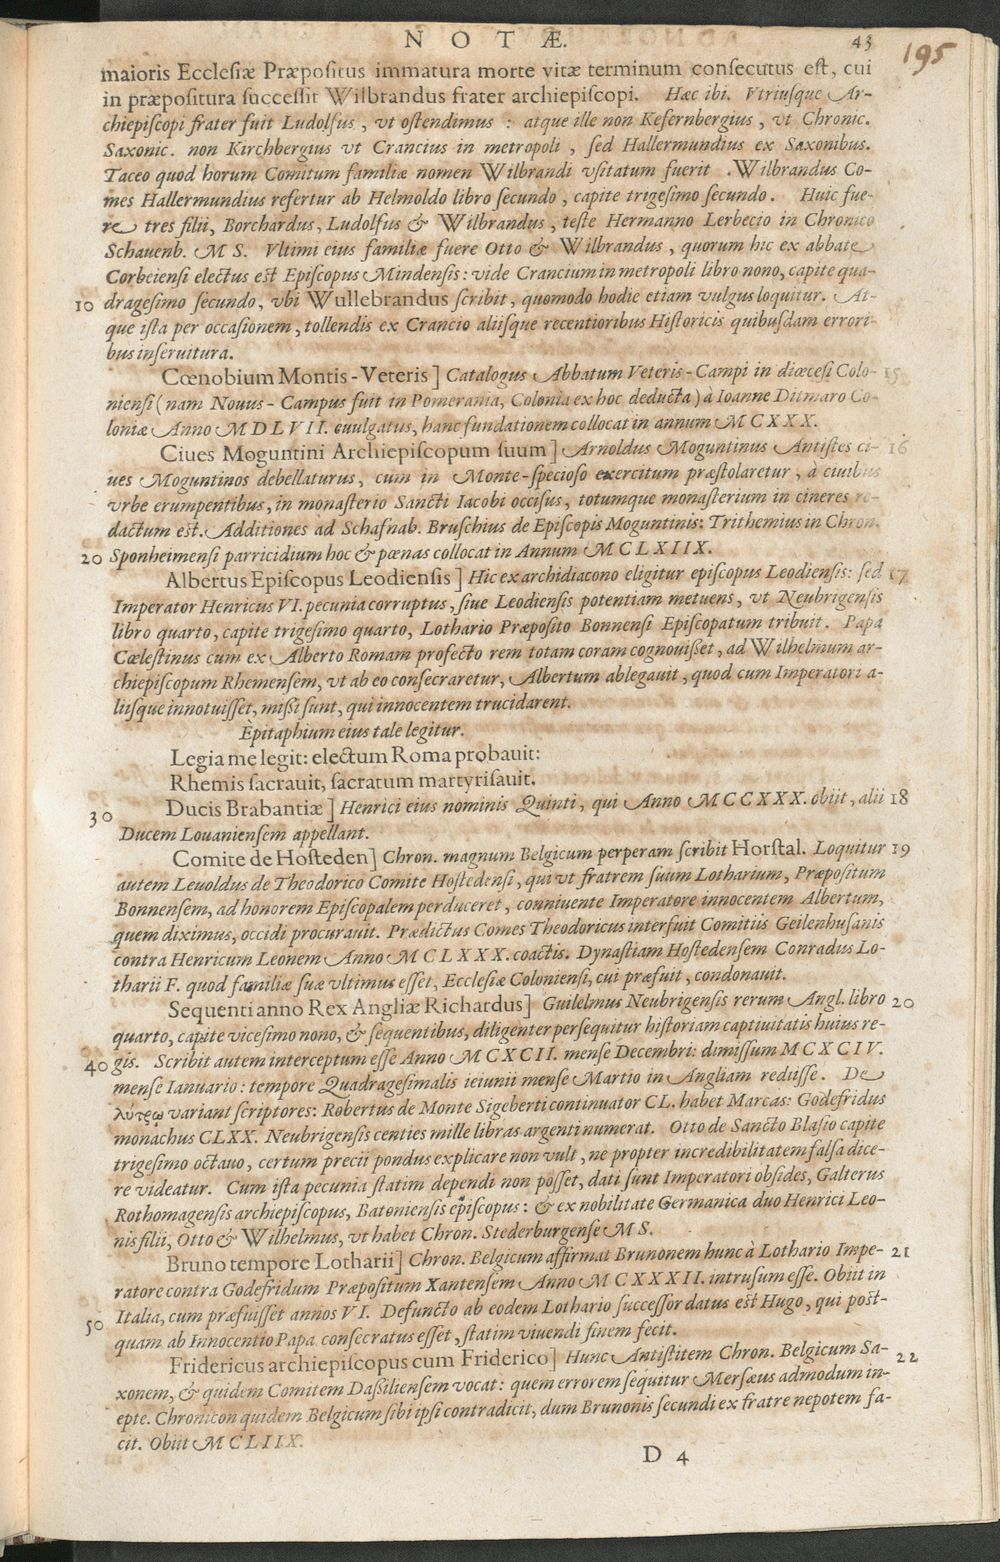 NOTÆ. 43
195
maioris Ecclesiæ Præpositus immatura morte vitæ terminum consecutus est, cui
in præpositura successit Wilbrandus frater archiepiscopi. Hæc ibi. Vtriusque Ar-
chiepiscopi frater fuit Ludolfus, vt ostendimus: atque ille non Kefernbergius, vt Chronic.
Saxonic. non Kirchbergius vt Crancius in metropoli, sed Hallermundius ex Saxonibus.
Taceo quod horum Comitum familiæ nomen Wilbrandi vsitatum fuerit. Wilbrandus Co-
mes Hallermundius refertur ab Helmoldo libro secundo, capite trigesimo secundo. Huic fue-
re tres filii, Borchardus, Ludolfus & Wilbrandus, teste Hermanno Lerbecio in Chronico
Schauenb. MS. Vltimi eius familiæ fuere Otto & Wilbrandus, quorum hic ex abbate
Corbeiensi electus est Episcopus Mindensis: vide Crancium in metropoli libro nono, capite qua-
10 dragesimo secundo, vbi Wullebrandus scribit, quomodo hodie etiam vulgus loquitur. At-
que ista per occasionem, tollendis ex Crancio aliisque recentioribus Historicis quibusdam errori-
bus inseruitura.
Cœnobium Montis-Veteris] Catalogus Abbatum Veteris-Campi in diœcesi Colo- 15
niensi (nam Nouus-Campus fuit in Pomerania, Colonia ex hoc deducta) à Ioanne Ditmaro Co-
loniæ Anno MDLVII. euulgatus, hanc fundationem collocat in annum MCXXX.
Ciues Moguntini Archiepiscopum suum] Arnoldus Moguntinus Antistes ci- 16
ues Moguntinos debellaturus, cum in Monte-specioso exercitum præstolaretur, à ciuibus
vrbe erumpentibus, in monasterio Sancti Iacobi occisus, totumque monasterium in cineres re-
dactum est. Additiones ad Schafnab. Bruschius de Episcopis Moguntinis: Trithemius in Chron.
20 Sponheimensi parricidium hoc & pœnas collocat in Annum MCLXIIX.
Albertus Episcopus Leodiensis] Hic ex archidiacono eligitur episcopus Leodiensis: sed 17
Imperator Henricus VI. pecunia corruptus, siue Leodiensis potentiam metuens, vt Neubrigensis
libro quarto, capite trigesimo quarto, Lothario Præposito Bonnensi Episcopatum tribuit. Papa
Cœlestinus cum ex Alberto Romam profecto rem totam coram cognouisset, ad Wilhelmum ar-
chiepiscopum Rhemensem, vt ab eo consecraretur, Albertum ablegauit, quod cum Imperatori a-
liisque innotuisset, missi sunt, qui innocentem trucidarent.
Epitaphium eius tale legitur.
Legia me legit: electum Roma probauit:
Rhemis sacrauit, sacratum martyrisauit.
Ducis Brabantiæ] Henrici eius nominis Quinti, qui Anno MCCXXX. obiit, alii 18
30 Ducem Louaniensem appellant.
Comite de Hosteden] Chron. magnum Belgicum perperam scribit Horstal. Loquitur 19
autem Leuoldus de Theodorico Comite Hostedensi, qui vt fratrem suum Lotharium, Præpositum
Bonnensem, ad honorem Episcopalem perduceret, conniuente Imperatore innocentem Albertum,
quem diximus, occidi procurauit. Prædictus Comes Theodoricus interfuit Comitiis Geilenhusanis
contra Henricum Leonem Anno MCLXXX. coactis. Dynastiam Hostedensem Conradus Lo-
tharii F. quod familiæ suæ vltimus esset, Ecclesiæ Coloniensi, cui præfuit, condonauit.
Sequenti anno Rex Angliæ Richardus] Guilelmus Neubrigensis rerum Angl. libro 20
quarto, capite vicesimo nono, & sequentibus, diligenter persequitur historiam captiuitatis huius re-
40 gis. Scribit autem interceptum esse Anno MCXCII. mense Decembri: dimissum MCXCIV.
mense Ianuario: tempore Quadragesimalis ieiunii mense Martio in Angliam rediisse. De
λύτρῳ variant scriptores: Robertus de Monte Sigeberti continuator CL. habet Marcas: Godefridus
monachus CLXX. Neubrigensis centies mille libras argenti numerat. Otto de Sancto Blasio capite
trigesimo octauo, certum precii pondus explicare non vult, ne propter incredibilitatem falsa dice-
re videatur. Cum ista pecunia statim dependi non posset, dati sunt Imperatori obsides, Galterus
Rothomagensis archiepiscopus, Batoniensis episcopus: & ex nobilitate Germanica duo Henrici Leo-
nis filii, Otto & Wilhelmus, vt habet Chron. Stederburgense MS.
Bruno tempore Lotharii] Chron. Belgicum affirmat Brunonem hunc à Lothario Impe- 21
ratore contra Godefridum Præpositum Xantensem Anno MCXXXII. intrusum esse. Obiit in
50 Italia, cum præfuisset annos VI. Defuncto ab eodem Lothario successor datus est Hugo, qui post-
quam ab Innocentio Papa consecratus esset, statim viuendi finem fecit.
Fridericus archiepiscopus cum Friderico] Hunc Antistitem Chron. Belgicum Sa- 22
xonem, & quidem Comitem Dassiliensem vocat: quem errorem sequitur Mersæus admodum in-
epte. Chronicon quidem Belgicum sibi ipsi contradicit, dum Brunonis secundi ex fratre nepotem fa-
cit. Obiit MCLIIX.
D 4